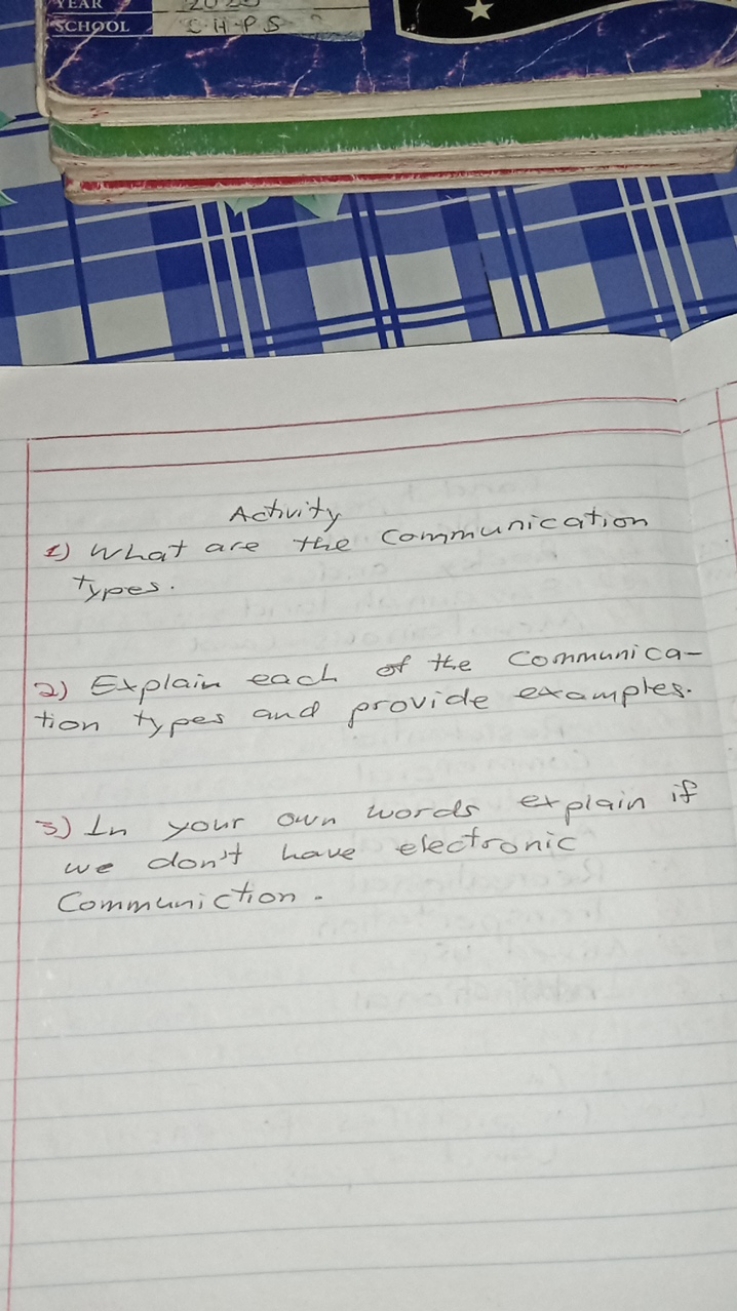 YEAR
SCHOOL C.H.P.S
Activity
1) What are the Communication
types.
2) Explain each of the Communica-
tion types and provide examples.
3) In your own words explain if
we don't have electronic
Communiction.